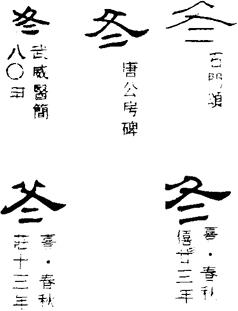 冬
石門頌
冬
唐公房碑
冬
武威醫簡
八〇甲
冬
熹·春秋
僖廿三年
冬
熹·春秋
莊十三年